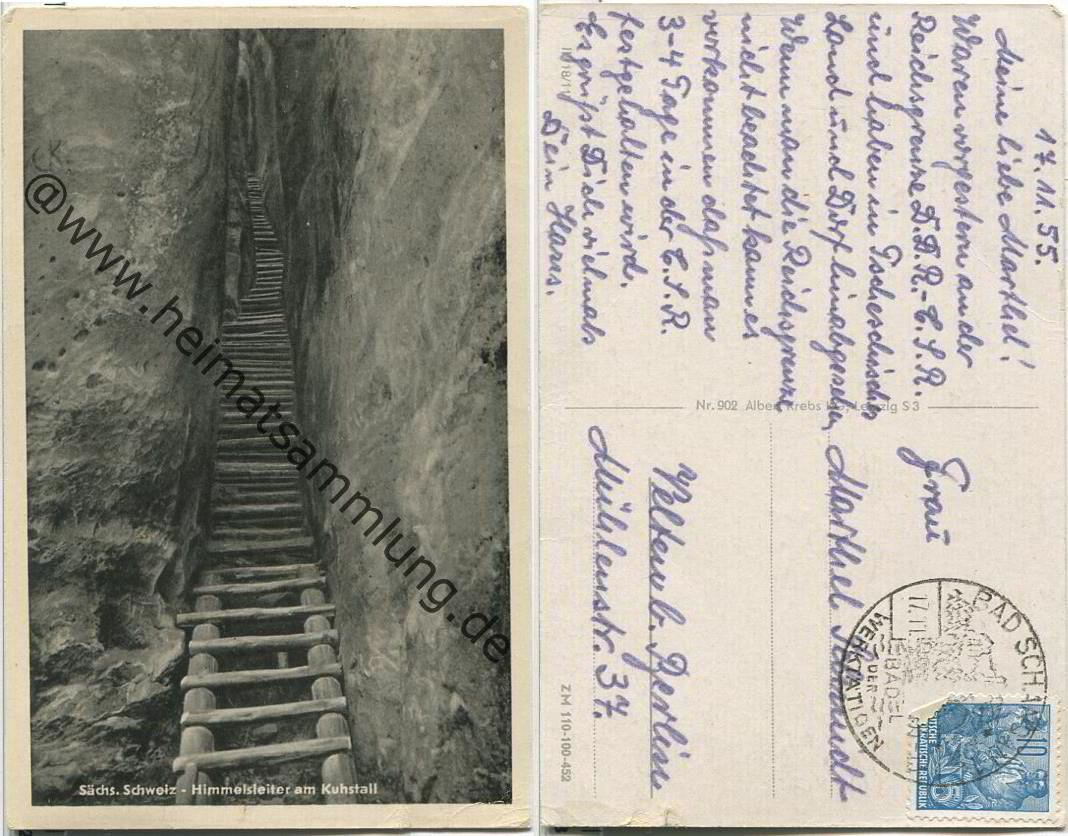 Sächs. Schweiz - Himmelsleiter am Kuhstall
@www.heimatsammlung.de
17.11.55.
Meine liebe Marthel!
Waren vorgestern an der
Reichsgrenze D.D.R.-C.S.R.
und haben in Tschechisches
Land und Dorf hinabgesehen
Wenn man die Reichsgrenze
nicht beachtet kann es
vorkommen daß man
3-4 Tage in der C.S.R.
festgehalten wird.
Es grüßt Dich vielmals
Dein Hans.
III/18/11
Nr. 902 Albert Krebs Leipzig S 3
Frau
Marthel
Velten b. Berlin
Mühlenstr. 37.
ZM 110-100-452
BAD SCH
17.11.
BADEL
DER
WERKTÄTIGEN
DEUTSCHE
DEMOKRATISCHE REPUBLIK
5